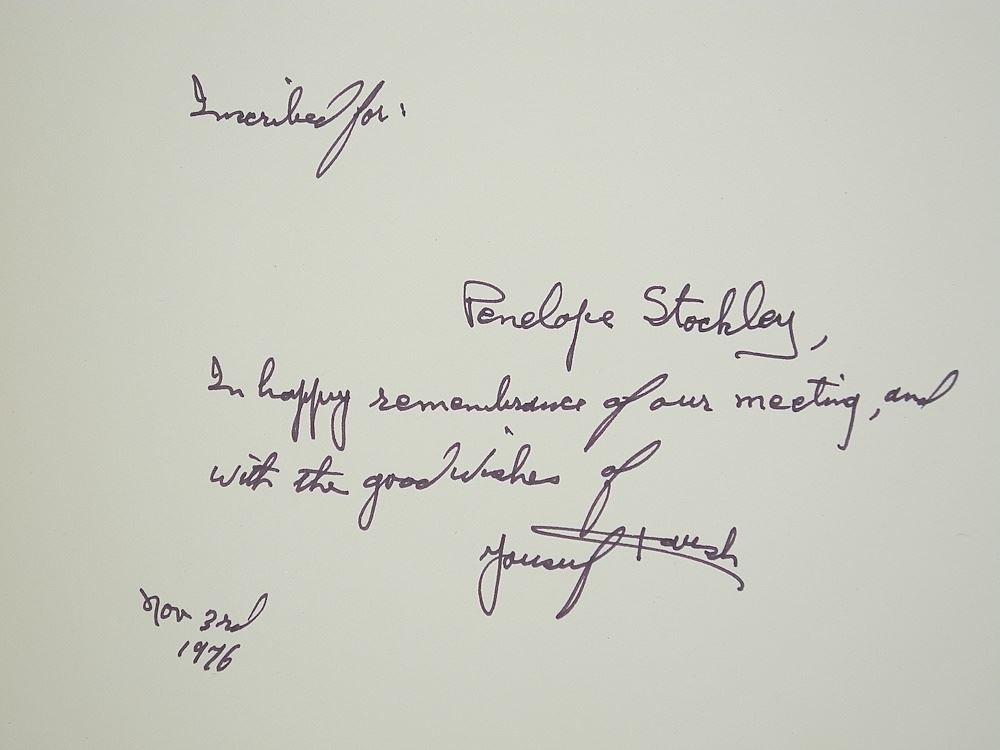 Inscribed for:
Penelope Stockley,
In happy remembrance of our meeting, and
with the good wishes of
Yousuf Karsh
Nov 3rd
1976